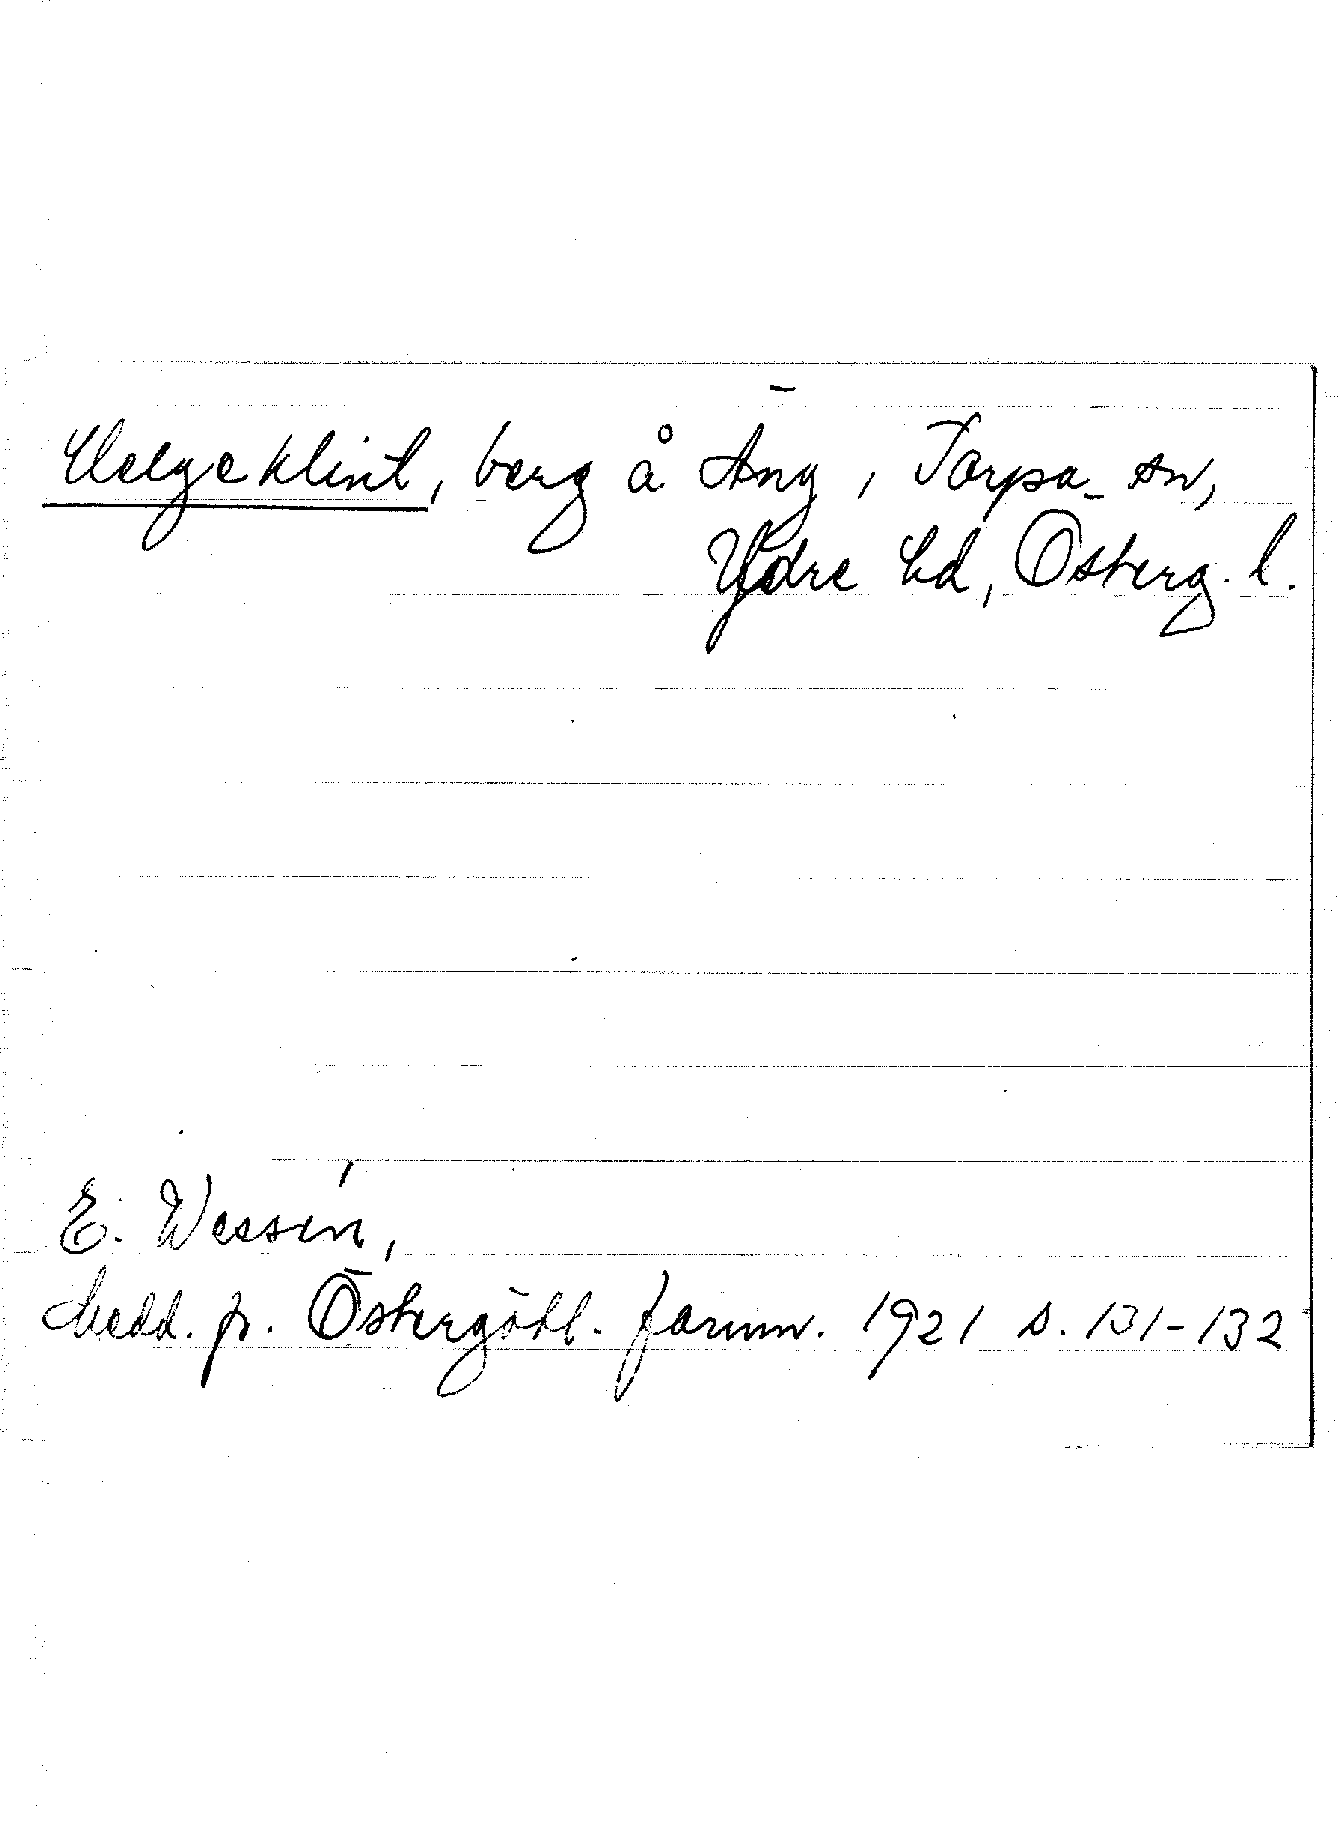 Helgeklint, berg å Äng, Torpa sn,
Ydre hd, Österg. l.
E. Wessén,
Medd. fr. Östergötl. fornm. 1921 s. 131-132